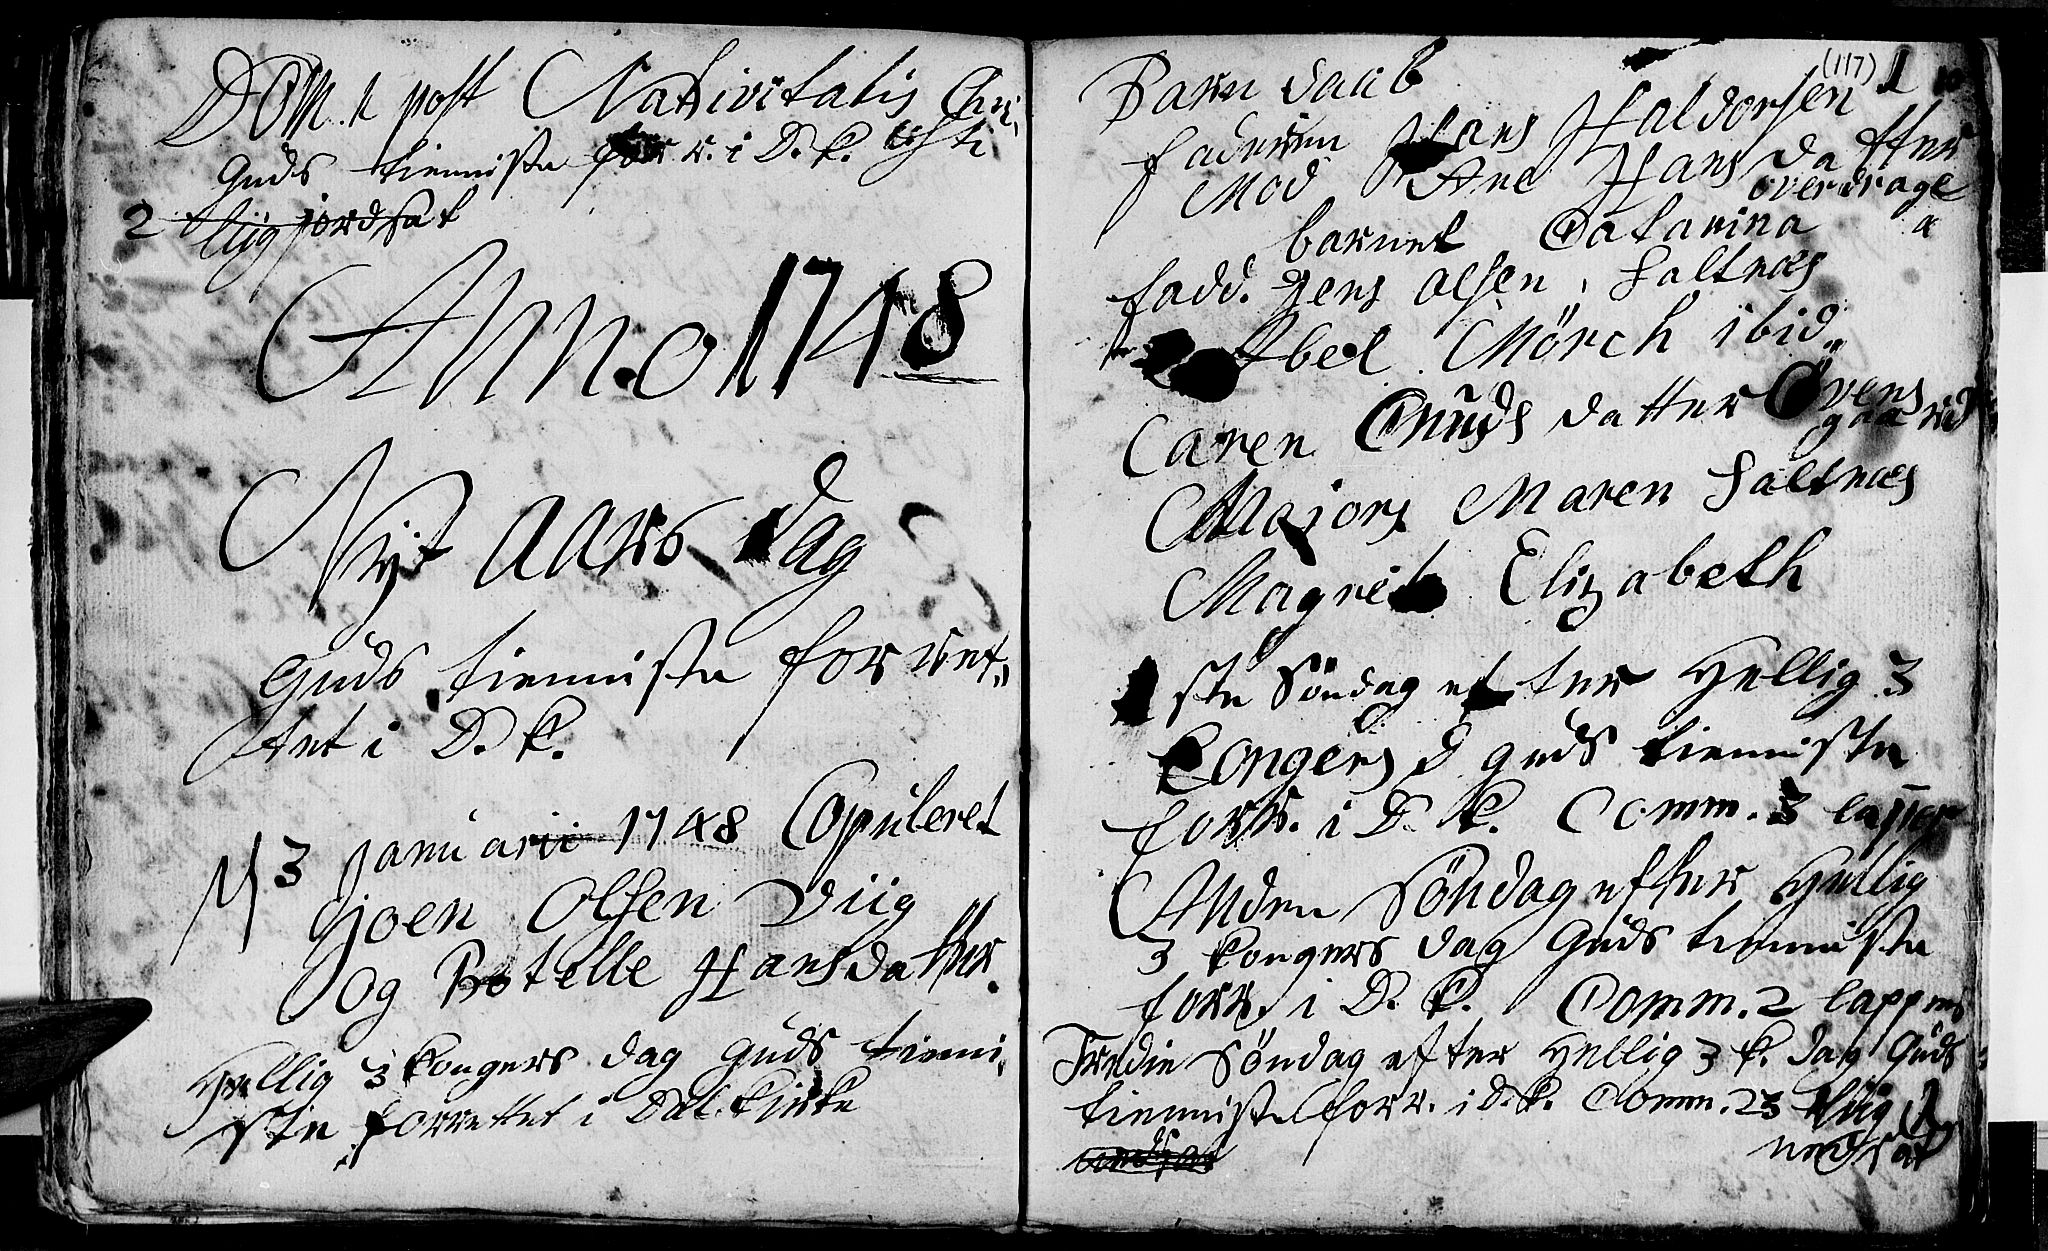 Dom. 1 post Nativitatis Chri
sti
Guds tienniste forr. i D. k.
2 Liig jordsat
Anno 1748
Nyt Aars Dag
Guds tienniste forret„
tet i D. k.
d 3 januarii 1748 Copuleret
joen Olsen Viig
Og Botelle Hansdatter.
Hellig 3 kongers dag Guds tienni„
ste forrettet i Dal. kirke
(117) 1
Barn Daab
faderen Hans Haldorsen
Mod Ane Hans datter
overdrage
barnet Catarina
fadd. Jens Olsen, Saltnæs
Abel Mörch ibid„
Caren Cnuds datter Övens
gaard
Majors Maren Saltnæs
Magret Elizabeth
1 ste Söndag efter Hellig 3
Congers d guds tienniste
forr. i D. k. Comm. 3 lapper
Anden Söndag efter Hellig
3 kongers dag Guds tienniste
forr. i D. k. Comm. 2 lappens
Tredie Söndag efter Hellig 3 k. dag Guds
tienniste forr. i D. k. Comm. 23 Liig 1
nedsat